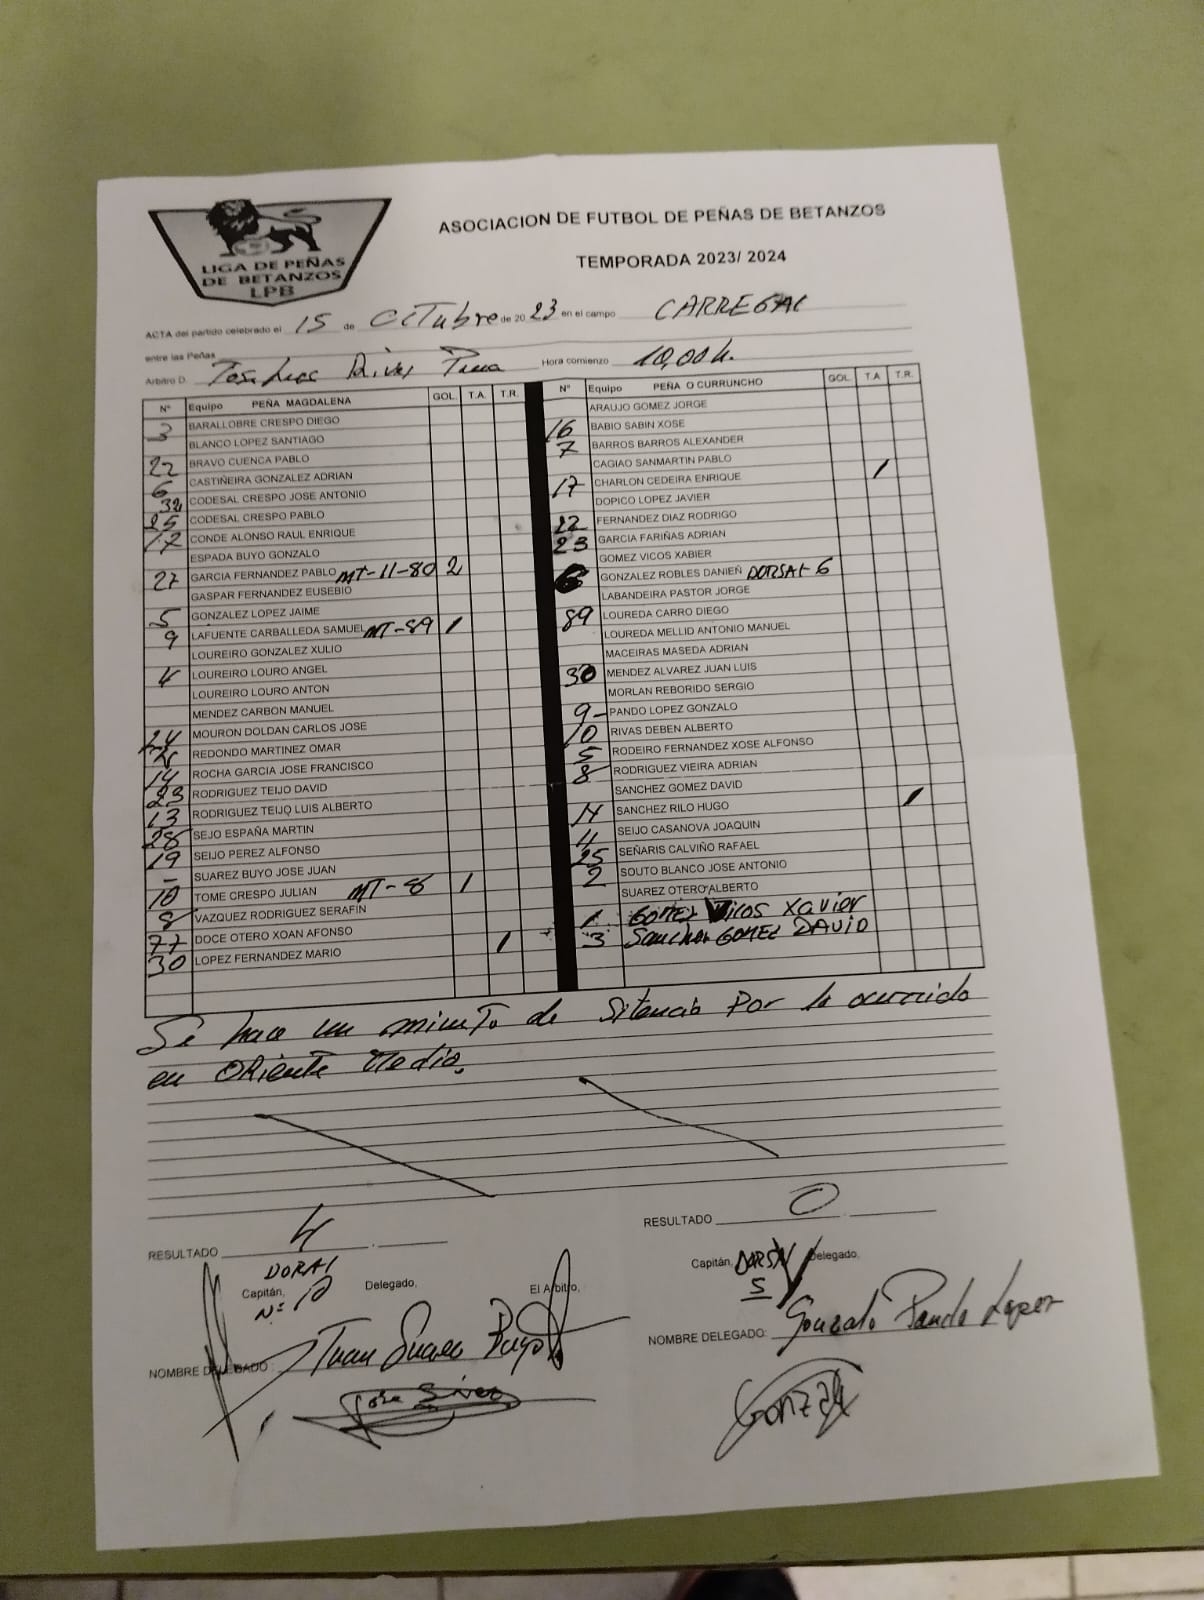 LIGA DE PEÑAS
DE BETANZOS
LPB
ASOCIACION DE FUTBOL DE PEÑAS DE BETANZOS
TEMPORADA 2023/ 2024
ACTA del partido celebrado el 15 de OCTubre de 2023 en el campo CARREGAL
entre las Peñas
Arbitro D. Hora comienzo 10,00 h.
Nº Equipo PEÑA MAGDALENA GOL. T.A. T.R.
3 BARALLOBRE CRESPO DIEGO
BLANCO LOPEZ SANTIAGO
22 BRAVO CUENCA PABLO
6 CASTIÑEIRA GONZALEZ ADRIAN
32 CODESAL CRESPO JOSE ANTONIO
25 CODESAL CRESPO PABLO
17 CONDE ALONSO RAUL ENRIQUE
ESPADA BUYO GONZALO
27 GARCIA FERNANDEZ PABLO MT-11-80 2
GASPAR FERNANDEZ EUSEBIO
5 GONZALEZ LOPEZ JAIME
9 LAFUENTE CARBALLEDA SAMUEL MT-89 1
LOUREIRO GONZALEZ XULIO
4 LOUREIRO LOURO ANGEL
LOUREIRO LOURO ANTON
MENDEZ CARBON MANUEL
24 MOURON DOLDAN CARLOS JOSE
REDONDO MARTINEZ OMAR
14 ROCHA GARCIA JOSE FRANCISCO
23 RODRIGUEZ TEIJO DAVID
13 RODRIGUEZ TEIJO LUIS ALBERTO
28 SEJO ESPAÑA MARTIN
19 SEIJO PEREZ ALFONSO
- SUAREZ BUYO JOSE JUAN
10 TOME CRESPO JULIAN MT-8 1
8 VAZQUEZ RODRIGUEZ SERAFIN
77 DOCE OTERO XOAN AFONSO
30 LOPEZ FERNANDEZ MARIO 1
Nº Equipo PEÑA O CURRUNCHO GOL. T.A. T.R.
ARAUJO GOMEZ JORGE
16 BABIO SABIN XOSE
7 BARROS BARROS ALEXANDER
CAGIAO SANMARTIN PABLO
17 CHARLON CEDEIRA ENRIQUE 1
DOPICO LOPEZ JAVIER
22 FERNANDEZ DIAZ RODRIGO
23 GARCIA FARIÑAS ADRIAN
GOMEZ VICOS XABIER
6 GONZALEZ ROBLES DANIEÑ DORSAL-6
LABANDEIRA PASTOR JORGE
89 LOUREDA CARRO DIEGO
LOUREDA MELLID ANTONIO MANUEL
MACEIRAS MASEDA ADRIAN
30 MENDEZ ALVAREZ JUAN LUIS
MORLAN REBORIDO SERGIO
9- PANDO LOPEZ GONZALO
10 RIVAS DEBEN ALBERTO
5 RODEIRO FERNANDEZ XOSE ALFONSO
8 RODRIGUEZ VIEIRA ADRIAN
SANCHEZ GOMEZ DAVID
14 SANCHEZ RILO HUGO 1
4 SEIJO CASANOVA JOAQUIN
25 SEÑARIS CALVIÑO RAFAEL
2 SOUTO BLANCO JOSE ANTONIO
SUAREZ OTERO ALBERTO
1 GOMEZ VICOS XAVIER
3 SANCHEZ GOMEZ DAVID
Se hace un minuto de Silencio por lo ocurrido
en ORIENTE Medio.
RESULTADO 4
RESULTADO 0
DORAL
Capitán, Delegado, El Arbitro,
Nº 10
Capitán, DORSAL Delegado,
5
NOMBRE DELEGADO : Juan Suarez Buyo
NOMBRE DELEGADO: Gonzalo Pando Lopez